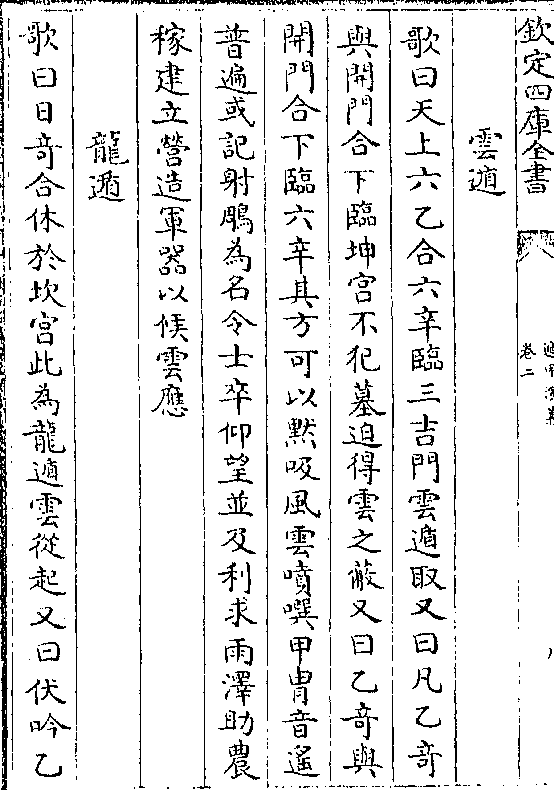 欽定四庫全書
卷二
雲遁
歌曰天上六乙合六辛臨三吉門雲遁取又曰凡乙奇
與開門合下臨坤宮不犯墓迫得雲之蔽又曰乙奇與
開門合下臨六辛其方可以黙吸風雲噴噀甲胄音遙
普遍或記射鵰為名令士卒仰望並及利求雨澤助農
稼建立營造軍器以候雲應
龍遁
歌曰日奇合休於坎宮此為龍遁雲從起又曰伏吟乙